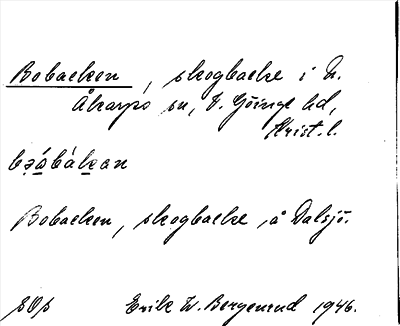 Bobacken, skogbacke i N.
Åkarps sn, V. Göinge hd,
Krist. l.
bəobakan
Bobacken, skogbacke å Dalsjö.
SOs Erik W. Bergenrud 1946.